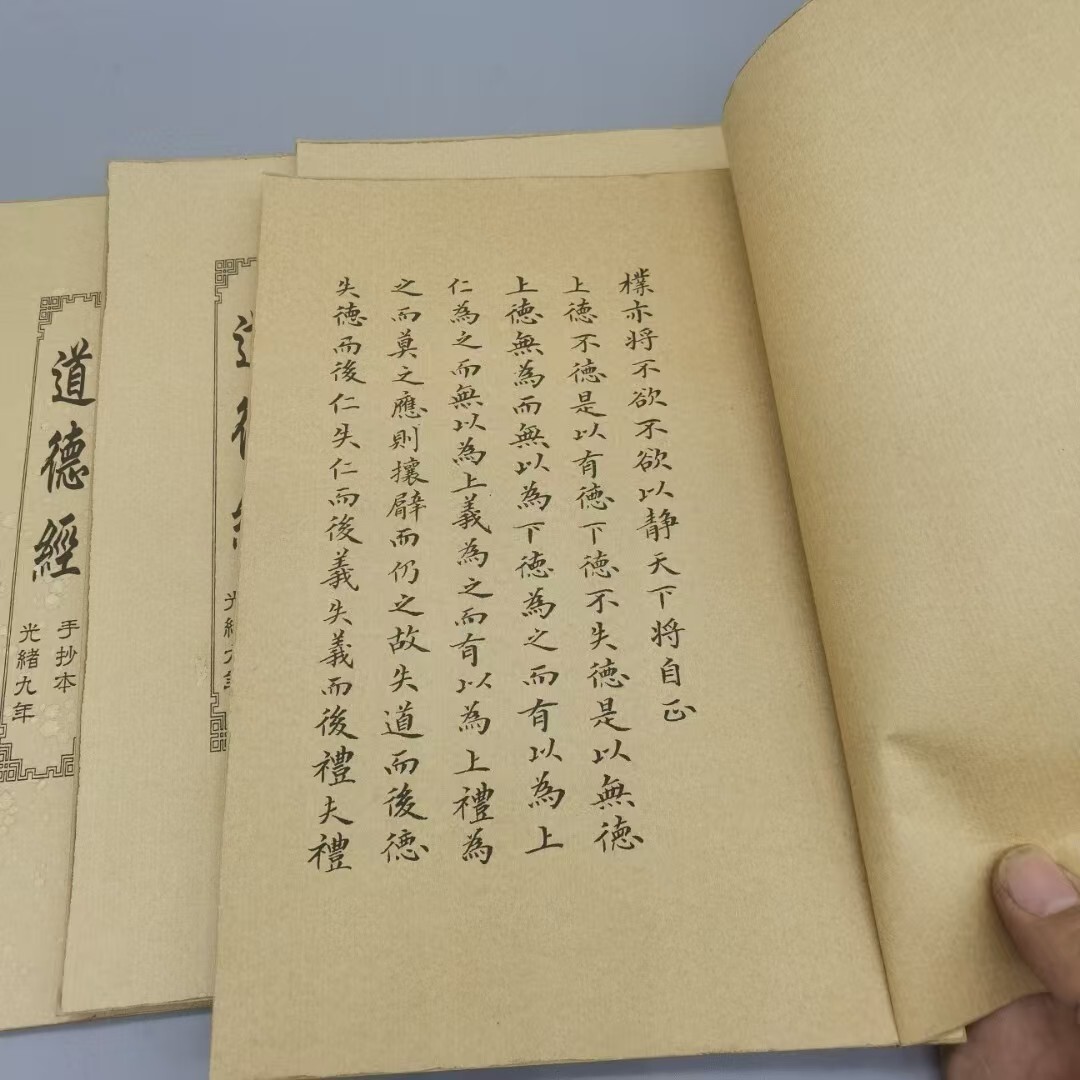 樸亦将不欲不欲以静天下将自正
上徳不徳是以有徳下徳不失徳是以無徳
上徳無為而無以為下徳為之而有以為上
仁為之而無以為上義為之而有以為上禮為
之而莫之應則攘臂而仍之故失道而後徳
失徳而後仁失仁而後義失義而後禮夫禮
道德經
手抄本
光緒九年